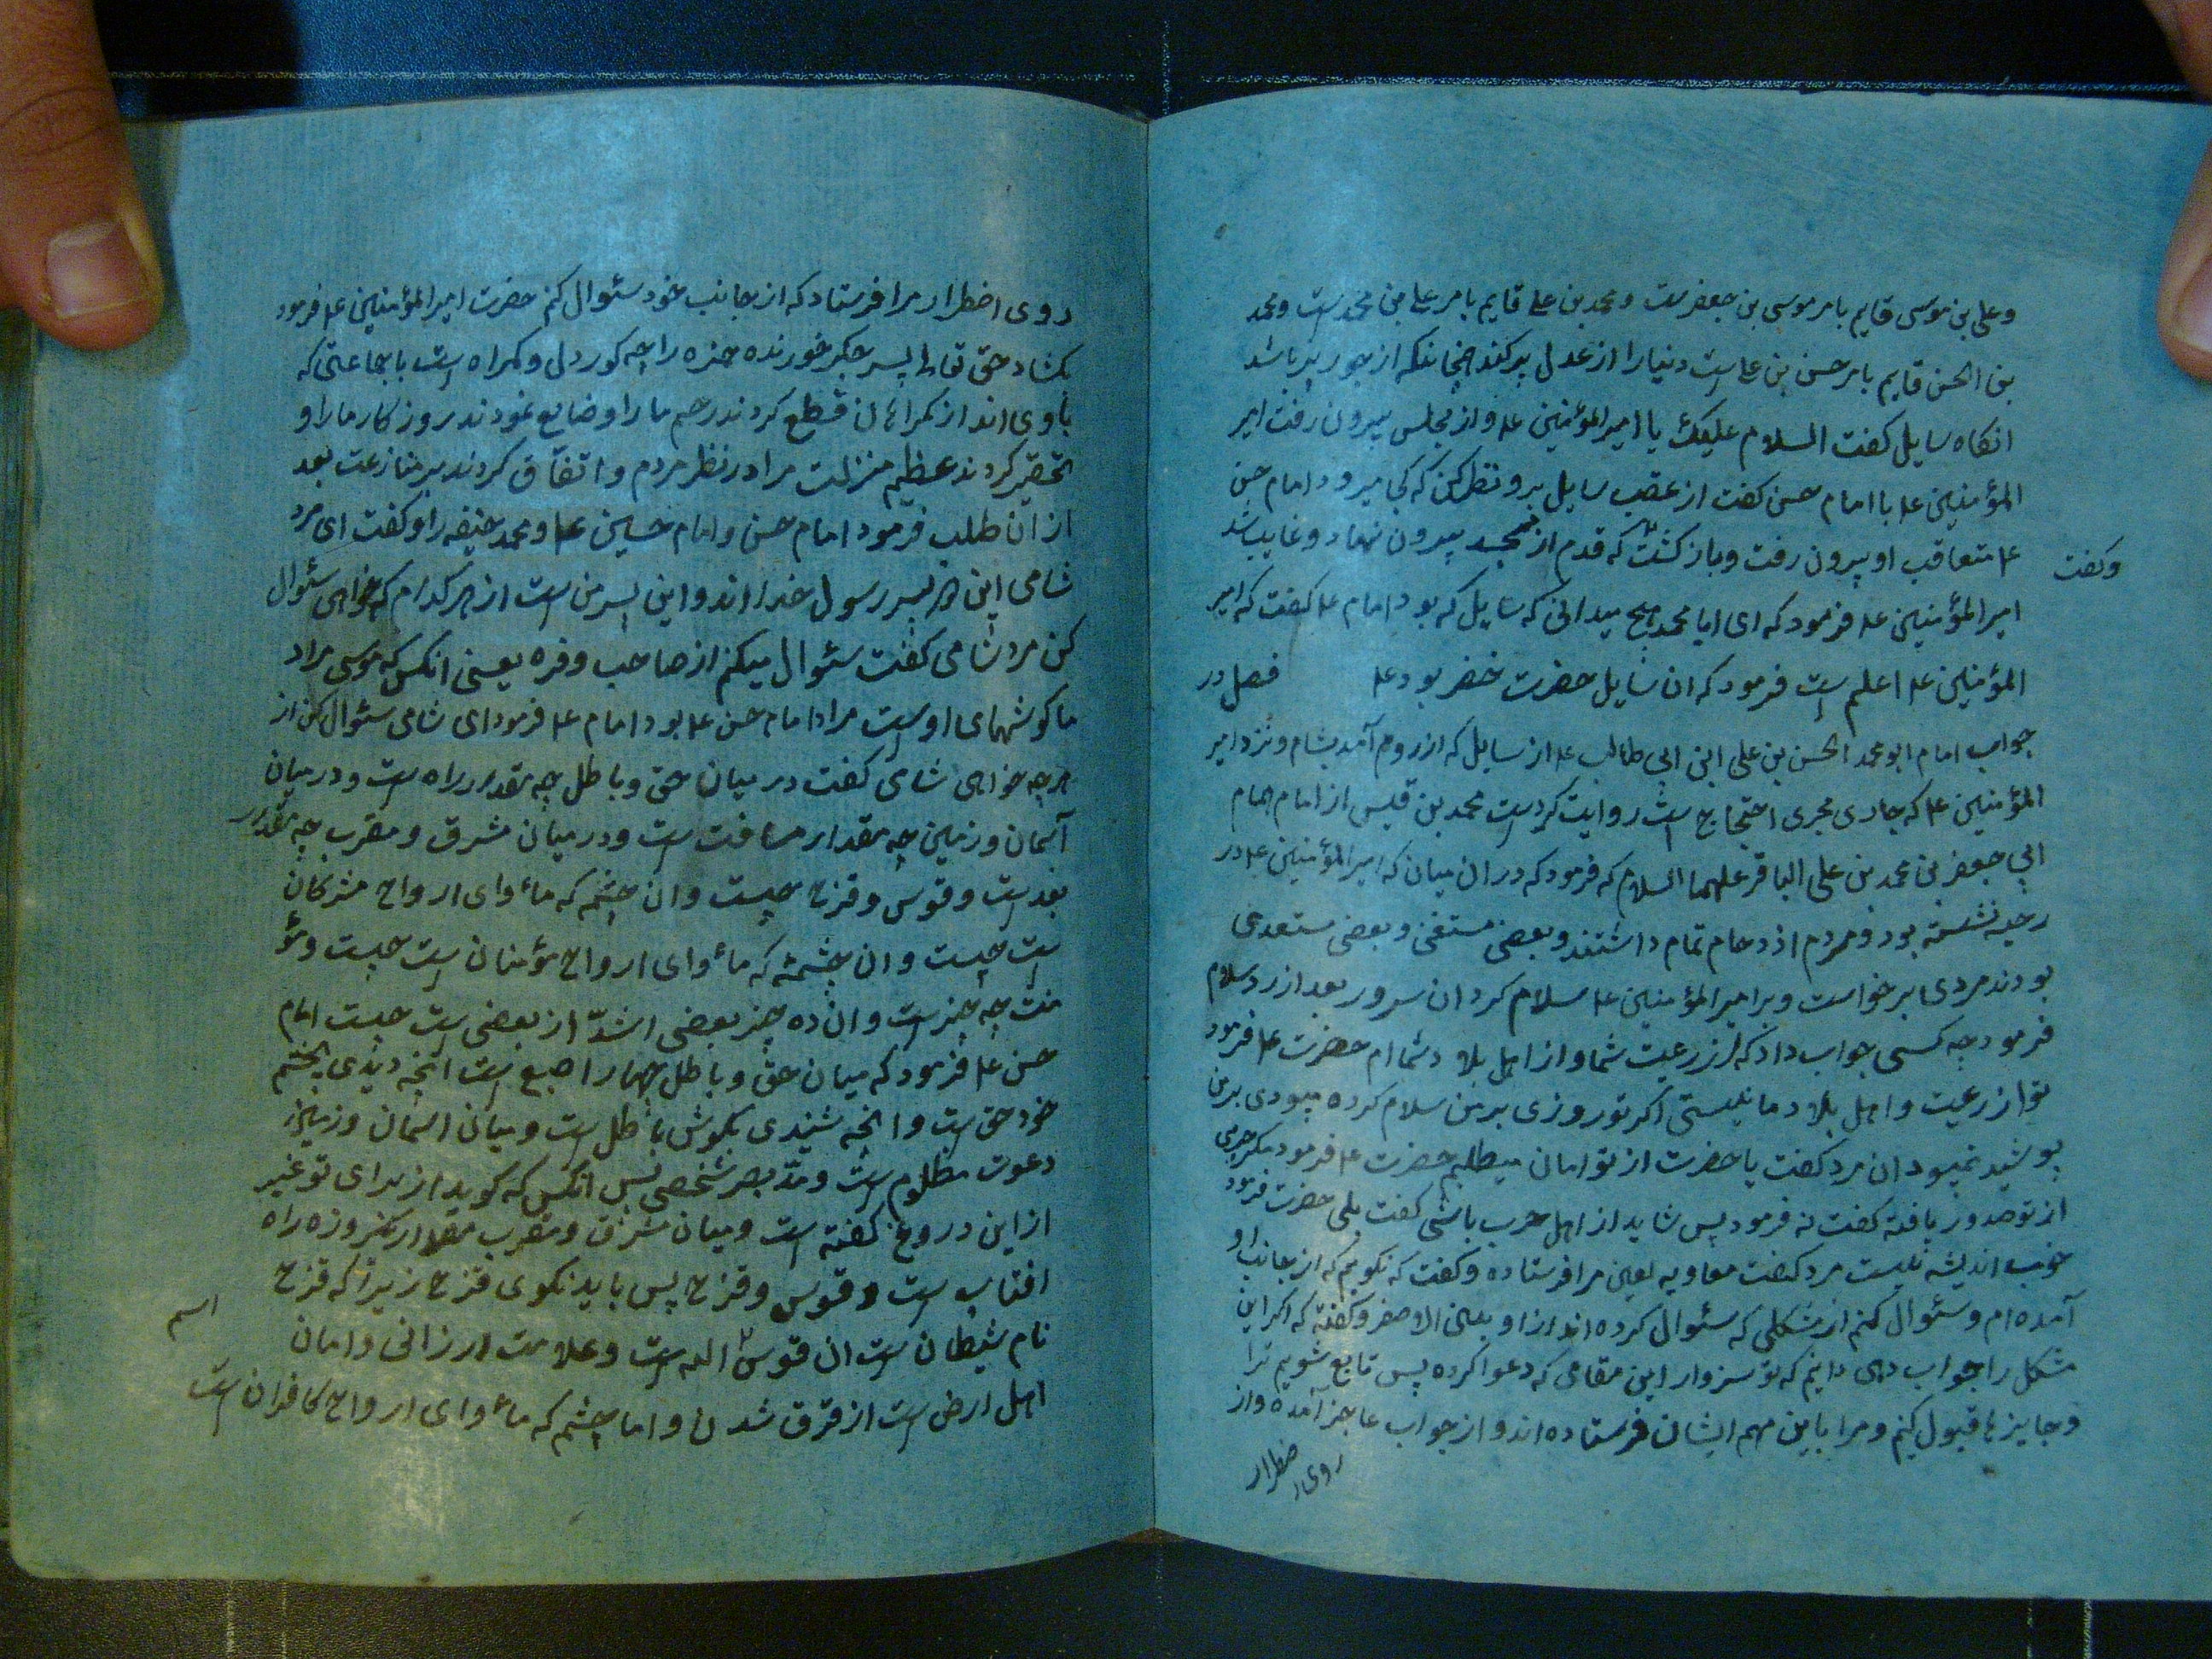 وعلی بن موسی قایم بامر موسی بن جعفرست ومحمد بن علی قایم بامر علی بن محمدست ومحمد
بن الحسن قایم بامر حسن بن علی است دنیا را از عدل پر کند چنانکه از جور پر باشد
انکاه سایل کفت السلام علیک یا امیرالمؤمنین ع‍ واز مجلس بیرون رفت امیر
المؤمنین ع‍ با امام حسن کفت از عقب سایل برو نظر کن که کجا میرود امام حسن
ع‍ متعاقب او بیرون رفت وباز کشت که قدم از مسجد بیرون نهاد وغایب شد
وکفت
امیرالمؤمنین ع‍ فرمود که ای ابا محمد هیچ میدانی که سایل که بود امام ع‍ کفت که امیر
المؤمنین ع‍ اعلم است فرمود که ان سایل حضرت خضر بود ع‍ فصل در
جواب امام ابومحمد الحسن بن علی ابن ابی طالب ع‍ از سایل که از روم آمد بشام ونزد امیر
المؤمنین ع‍ که جاری مجری احتجاج است روایت کردست محمد بن قیس از امام همام
ابی جعفر بن محمد بن علی الباقر علیهما السلام که فرمود که در ان میان که امیرالمؤمنین ع‍ در
رحبه نشسته بود ومردم ازدحام تمام داشتند وبعضی مستفتی وبعضی مستعدی
بودند مردی برخواست وبر امیرالمؤمنین ع‍ سلام کرد ان سرور بعد از رد سلام
فرمود چه کسی جواب داد که از رعیت شما واز اهل بلاد شما ام حضرت ع‍ فرمود
تو از رعیت واهل بلاد ما نیستی اکر تو روزی بر من سلام کرده میبودی بر من
پوشید نمیبود ان مرد کفت یا حضرت از تو امان میطلبم حضرت ع‍ فرمود مکر جرمی
از تو صدور یافته کفت نه فرمود پس شاید از اهل حرب باشی کفت بلی حضرت فرمود
خوب اندیشه نیست مرد کفت معاویه لعین مرا فرستاده وکفت که نکویم که از جانب او
آمده ام وسئوال کنم از مشکلی که سئوال کرده اند از او بعنی الاصفر وکفته که اکر این
مشکل را جواب دهی دانیم که تو سزوار این مقامی که دعوا کرده پس تابع شویم ترا
وجایزها قبول کنیم ومرا باین مهم ایشان فرستاده اند واز جواب عاجز آمده واز
روی اضطرار
روی اضطرار مرا فرستاد که از جانب خود سئوال کنم حضرت امیرالمؤمنین ع‍ فرمود
بکشاد حق تعالی پسر جکر خورنده حمزه را چه کور دل وکمراه است با جماعتی که
با وی اند از کمراهان قطع کردند رحم ما را وضایع نمودند روز کار ما را و
تحقیر کردند عظیم منزلت مرا در نظر مردم واتفاق کردند بر منازعت بعد
از ان طلب فرمود امام حسن وامام حسین ع‍ ومحمد حنیفه را وکفت ای مرد
شامی این دو پسر رسول خدا اند واین پسر من است از هر کدام که خواهی سئوال
کن مرد شامی کفت سئوال میکنم از صاحب وفره یعنی انکس که موسی مراد
ما کوشهای اوست مراد امام حسن ع‍ بود امام ع‍ فرمود ای شامی سئوال کن از
هر چه خواهی شامی کفت در میان حق وباطل چه مقدار راه است ودر میان
آسمان وزمین چه مقدار مسافت است ودر میان مشرق ومغرب چه مقدار
بعد است وقوس وقزح چیست وان چشم که مأوای ارواح مشرکان
است چیست وان چشمه که مأوای ارواح مؤمنان است چیست ومؤ
منث چه چیز است وان ده چیز بعضی اشدّ از بعضی است چیست امام
حسن ع‍ فرمود که میان حق وباطل چهار اصبع است انچه دیدی بچشم
خود حق است وانچه شنیدی بکوش باطل است ومیان اسمان وزمین
دعوت مظلوم است ومدّ بصر شخصی پس انکس که کوید از برای تو غیر
از این دروغ کفته است ومیان مشرق ومغرب مقدار یکروزه راه
افتاب است وقوس وقزح پس باید نکوی قزح زیرا که قزح
نام شیطان است ان قوس الله است وعلامت ارزانی وامان
اسم
اهل ارض است از فرق شدن واما چشم که مأوای ارواح کافران است